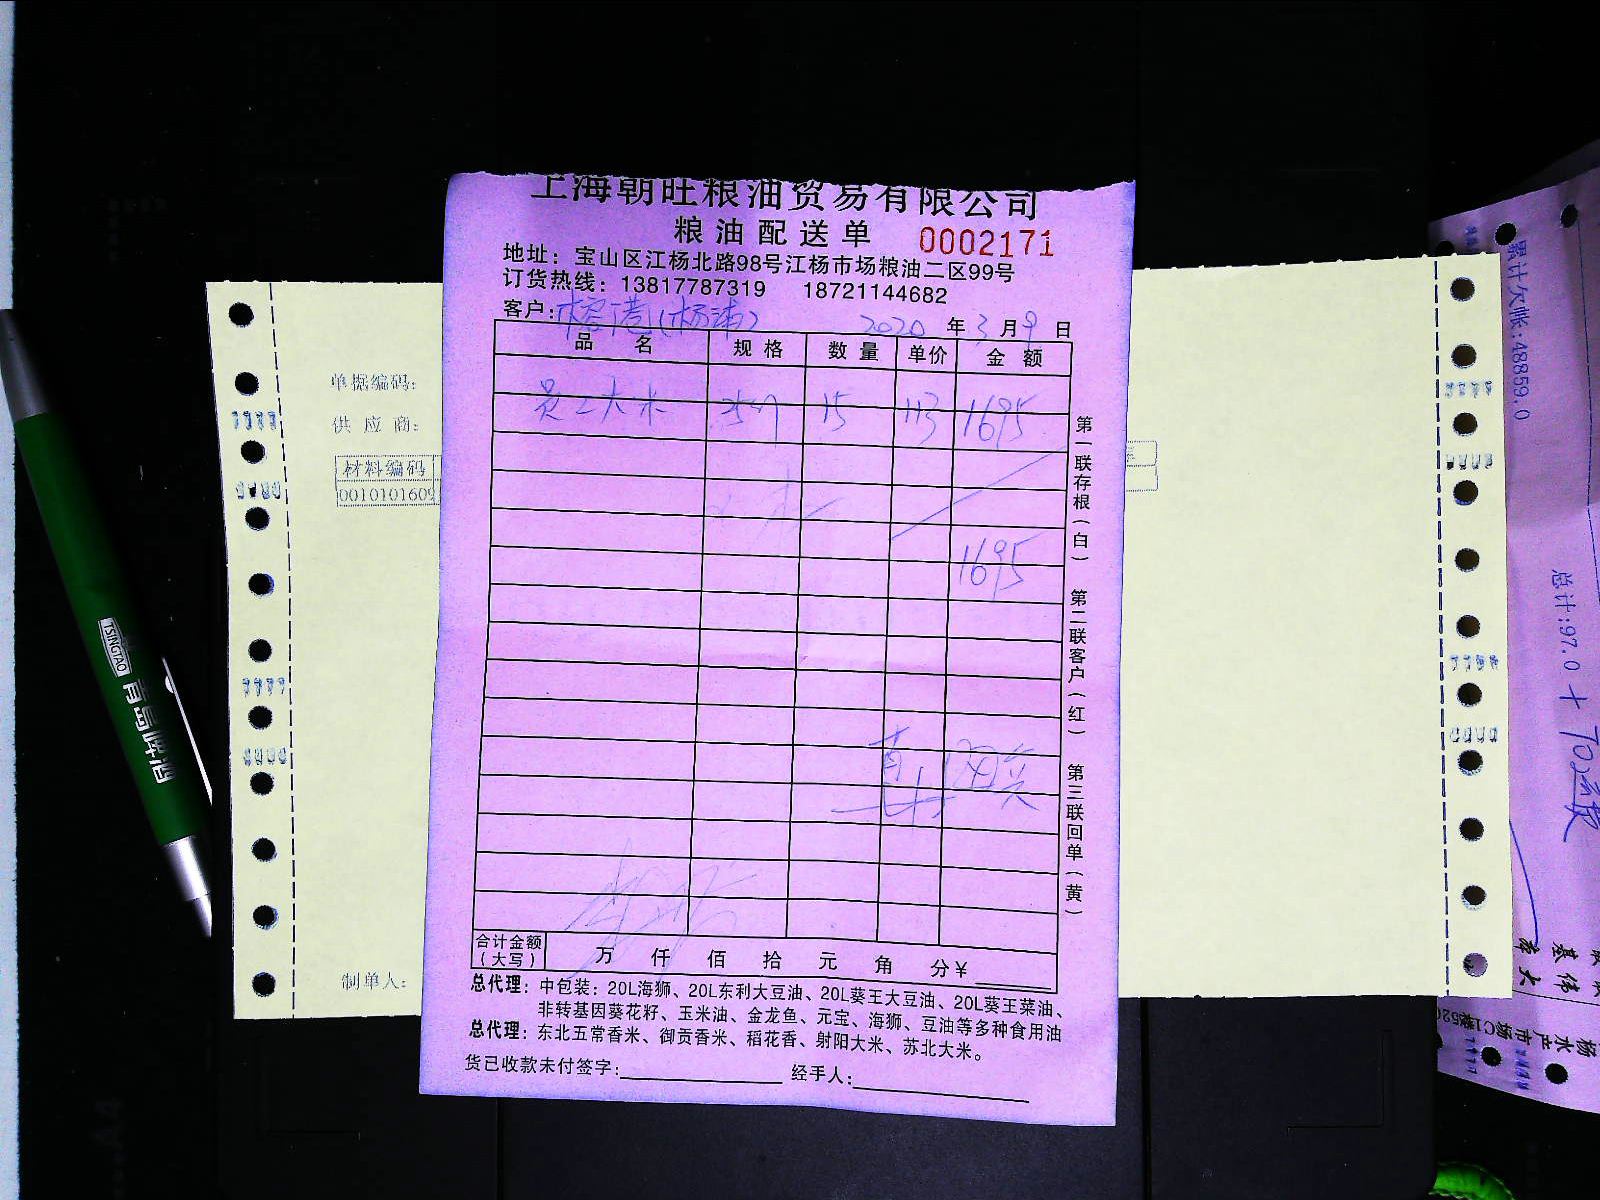 上海朝旺粮油贸易有限公司
粮油配送单 0002171
地址：宝山区江杨北路98号江杨市场粮油二区99号
订货热线：13817787319 18721144682
客户：榕港(杨浦) 2020 年 3 月 9 日
品名 规格 数量 单价 金额
员工大米 25kg 15 113 1695
1695
第一联存根（白） 第二联客户（红） 第三联回单（黄）
合计金额（大写） 万 仟 佰 拾 元 角 分￥
总代理：中包装：20L海狮、20L东利大豆油、20L葵王大豆油、20L葵王菜油、
非转基因葵花籽、玉米油、金龙鱼、元宝、海狮、豆油等多种食用油
总代理：东北五常香米、御贡香米、稻花香、射阳大米、苏北大米。
货已收款未付签字： 经手人：
单据编码：
供应商：
材料编码
0010101609
制单人：
TSINGTAO 青岛啤酒
累计欠帐:48859.0
总计:97.0
杨水产市场C1楼